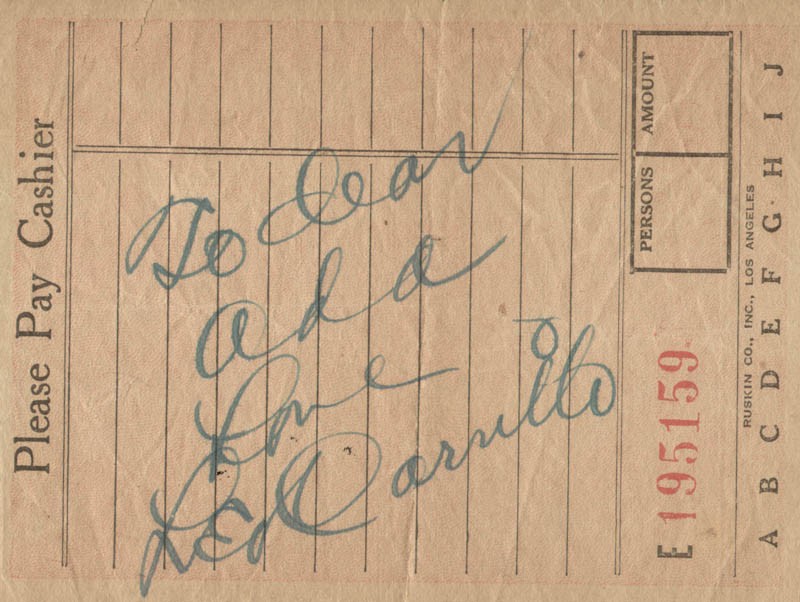 Please Pay Cashier
To dear
Ada
Love
Leo Carrillo
PERSONS AMOUNT
E 195159
RUSKIN CO., INC., LOS ANGELES
A B C D E F G H I J